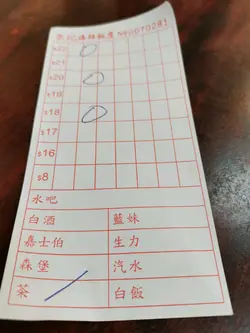 No 070281
s22
s21
s20
s19
s18
s17
s16
s8
水吧
白酒 藍妹
嘉士伯 生力
森堡 汽水
茶 白飯